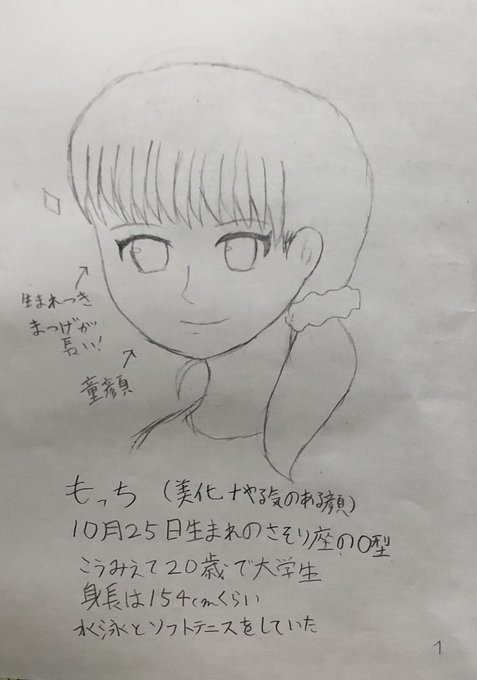 生まれつき
まつげが
長い!
童顔
もっち (美化+やる気のある顔)
10月25日生まれのさそり座のO型
こうみえて20歳で大学生
身長は154cmくらい
水泳とソフトテニスをしていた
1